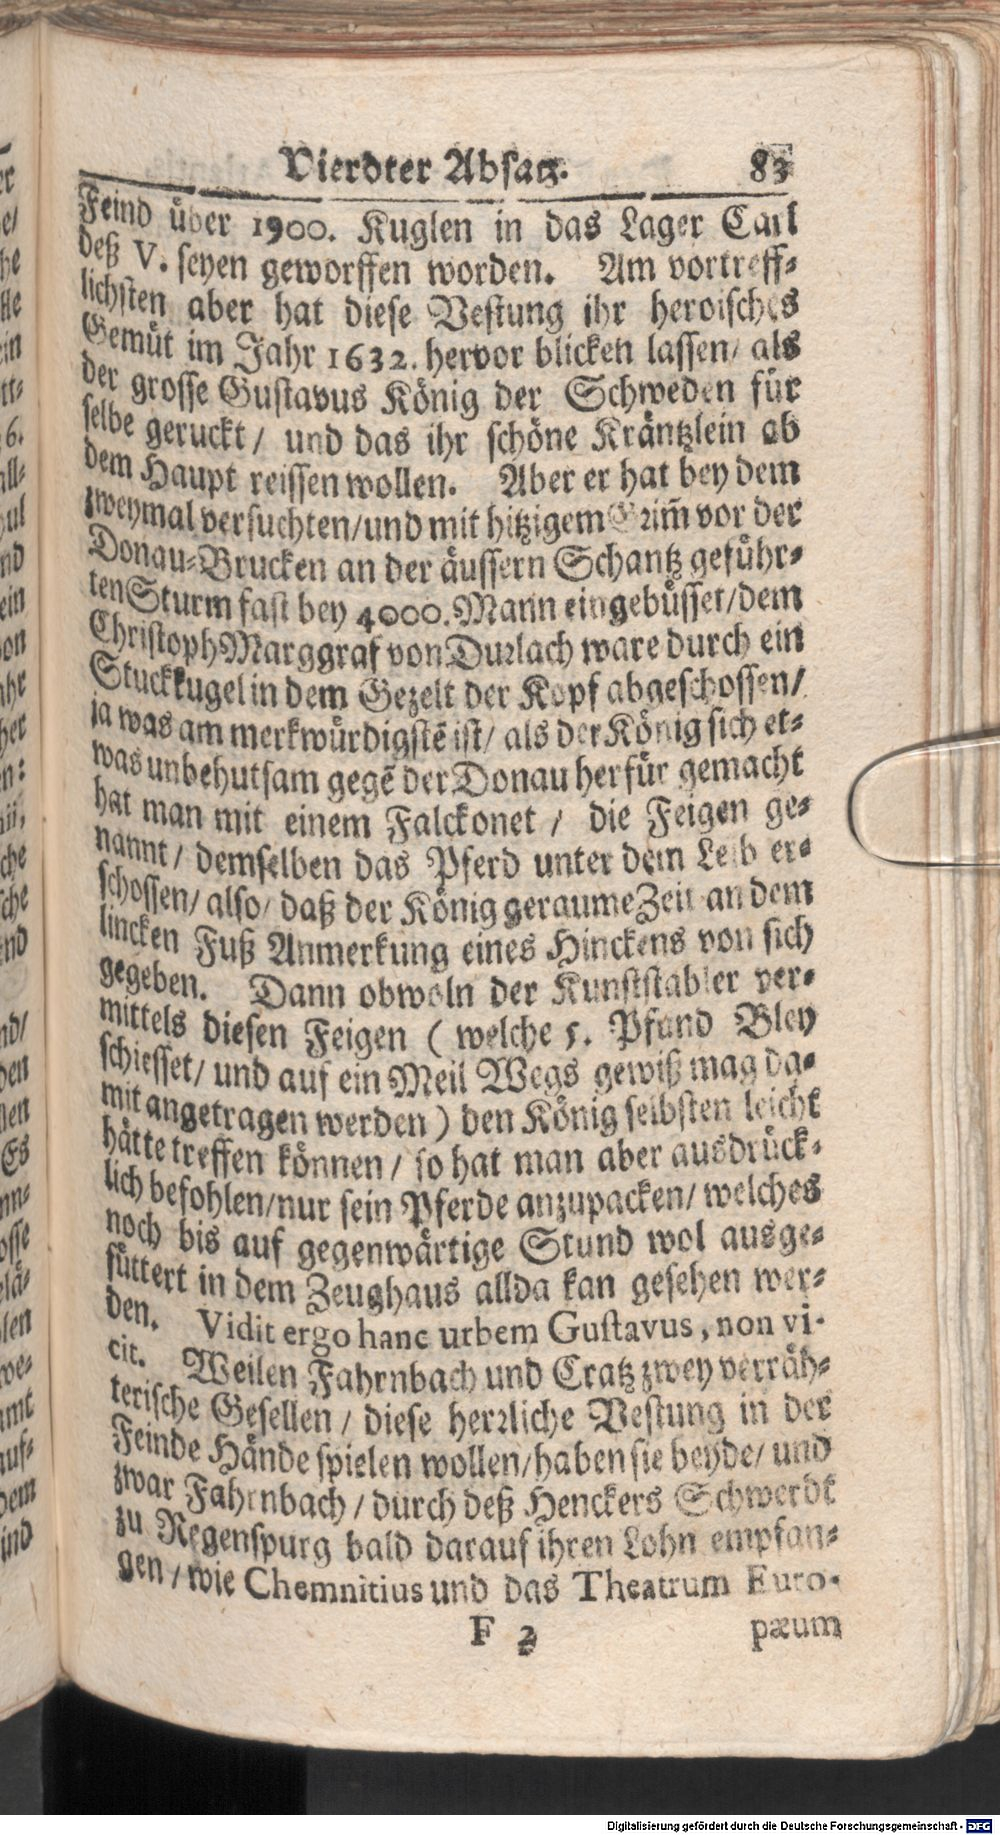 Vierdter Absatz. 83
Feind über 1900. Kuglen in das Lager Carl
deß V. seyen geworffen worden. Am vortreff-
lichsten aber hat diese Vestung ihr heroisches
Gemüt im Jahr 1632. hervor blicken lassen/ als
der grosse Gustavus König der Schweden für
selbe geruckt / und das ihr schöne Kräntzlein ab
dem Haupt reissen wollen. Aber er hat bey dem
zweymal versuchten/und mit hitzigem Grim̃ vor der
Donau-Brucken an der äussern Schantz geführ-
ten Sturm fast bey 4000. Mann eingebüsset/dem
Christoph Marggraf von Durlach ware durch ein
Stuckkugel in dem Gezelt der Kopf abgeschossen/
ja was am merkwürdigstẽ ist/ als der König sich et-
was unbehutsam gegẽ der Donau herfür gemacht
hat man mit einem Falckonet / die Feigen ge-
nannt / demselben das Pferd unter dem Leib er-
schossen/ also/ daß der König geraume Zeit an dem
lincken Fuß Anmerkung eines Hinckens von sich
gegeben. Dann obwoln der Kunststabler ver-
mittels diesen Feigen ( welche 5. Pfund Bley
schiesset/ und auf ein Meil Wegs gewiß mag da-
mit angetragen werden ) den König selbsten leicht
hätte treffen können / so hat man aber ausdrück-
lich befohlen/nur sein Pferde anzupacken/ welches
noch bis auf gegenwärtige Stund wol ausge-
füttert in dem Zeughaus allda kan gesehen wer-
den. Vidit ergo hanc urbem Gustavus, non vi-
cit. Weilen Fahrnbach und Cratz zwey verräh-
terische Gesellen / diese herrliche Vestung in der
Feinde Hände spielen wollen/haben sie beyde/ und
zwar Fahrnbach / durch deß Henckers Schwerdt
zu Regenspurg bald darauf ihren Lohn empfan-
gen / wie Chemnitius und das Theatrum Euro-
F 2 pæum
-
82
Digitalisierung gefördert durch die Deutsche Forschungsgemeinschaft - DFG